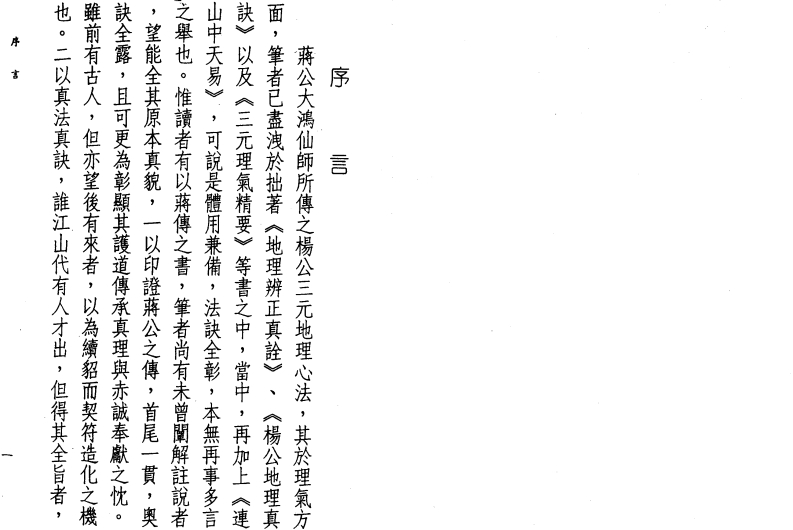 序　言
蔣公大鴻仙師所傳之楊公三元地理心法，其於理氣方
面，筆者已盡洩於拙著《地理辨正真詮》、《楊公地理真
訣》以及《三元理氣精要》等書之中，當中，再加上《連
山中天易》，可說是體用兼備，法訣全彰，本無再事多言
之舉也。惟讀者有以蔣傳之書，筆者尚有未曾闡解註說者
，望能全其原本真貌，一以印證蔣公之傳，首尾一貫，奧
訣全露，且可更為彰顯其護道傳承真理與赤誠奉獻之忱。
雖前有古人，但亦望後有來者，以為續貂而契符造化之機
也。二以真法真訣，誰江山代有人才出，但得其全旨者，
序言
一